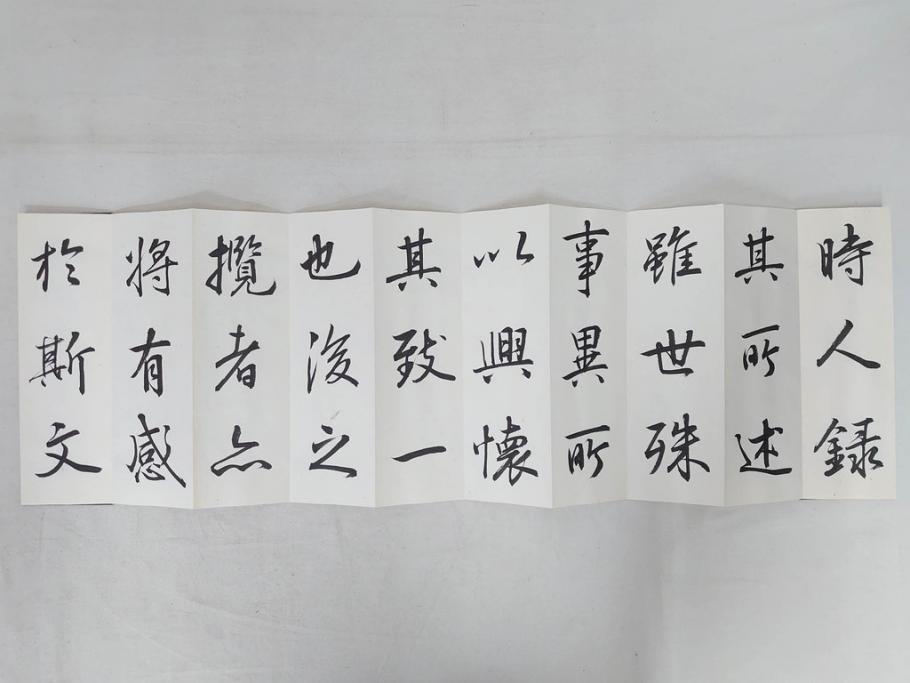 時人録
其所述
雖世殊
事異所
以興懷
其致一
也後之
攬者亦
將有感
於斯文